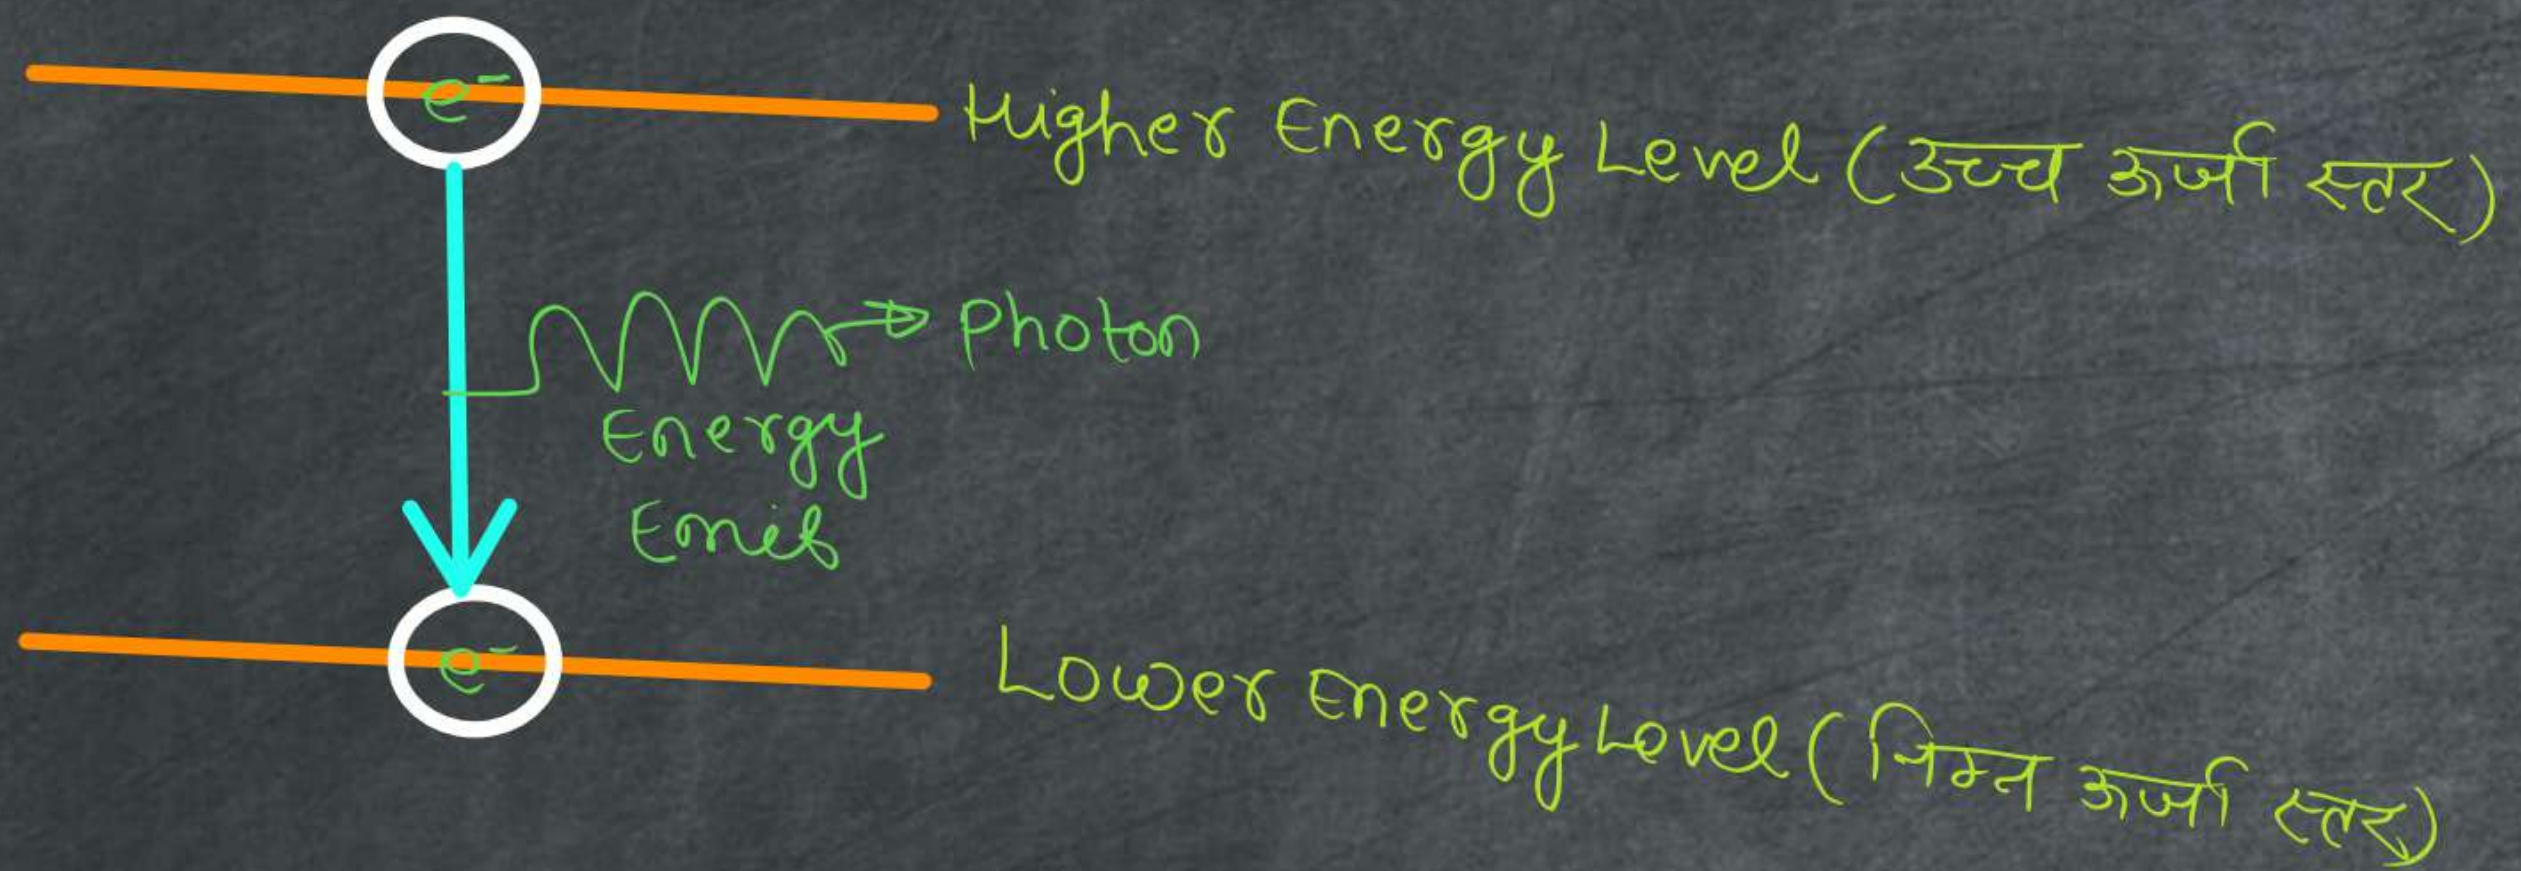 e⁻
Higher Energy Level (उच्च ऊर्जा स्तर)
Photon
Energy
Emit
e⁻
Lower Energy Level (निम्न ऊर्जा स्तर)